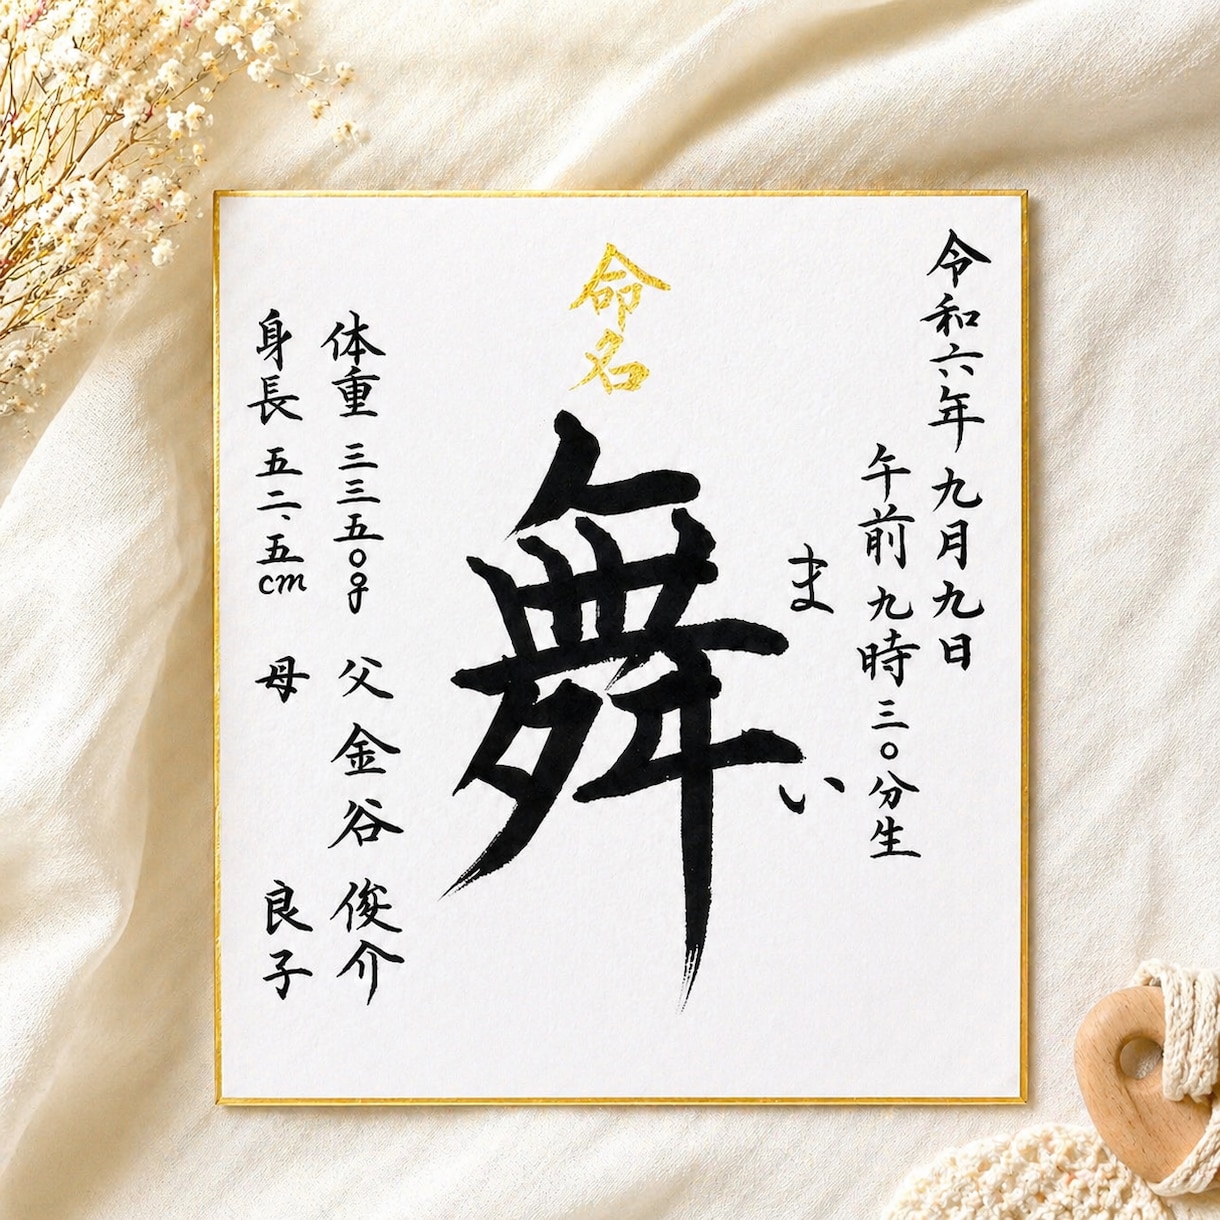 令和六年 九月九日
午前九時三〇分生
まい
命名
舞
体重 三三五〇g 父 金谷 俊介
身長 五二、五cm 母 良子